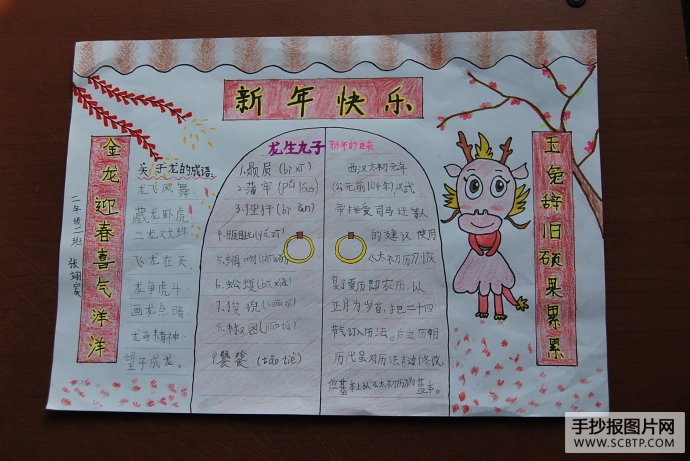 新年快乐
金龙迎春喜气洋洋
二年级二班 张翊宸
关于龙的成语:
龙飞凤舞
藏龙卧虎
二龙戏珠
飞龙在天
龙争虎斗
画龙点睛
龙马精神
望子成龙。
龙生九子
2.蒲牢(pú láo)
3.狴犴(bì àn)
8.椒图(jiāo tú)
9.饕餮(tāo tiè)
新年的由来
西汉太初元年
(公元前104年)汉武
帝接受司马迁等人
的建议使用
《太初历》恢
复了夏历即农历,以
正月为岁首,把二十四
节气订入历法。后立历朝
历代虽对历法有过修改,
但基本上以《太初历》为蓝本。
玉兔辞旧硕果累累
手抄报图片网
WWW.SCBTP.COM